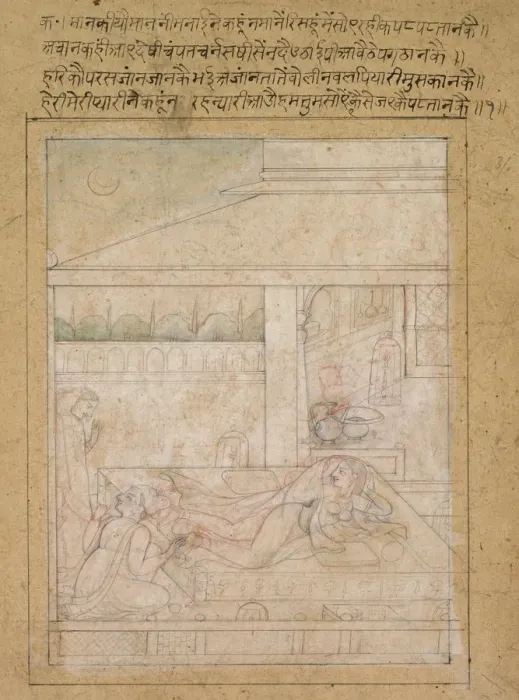 क॰। मानकीयौमाननीमनाईनैकहूंनमानैंरिसहूंमेंसो१रहीकपटपटतानकै॥
अचानकहीआ१देषी सषीसेंनदैउठाईपीआवैठेपगठानकै॥
हरिकौपरसजांनजानकैभइअजानतातेंवोलीनवलपियारीमुसकानकै॥
हेरीमेरीप्यारीनैकहूंन रहन्यारीआउहमतुमसो१रहैं पटतानकै॥१॥